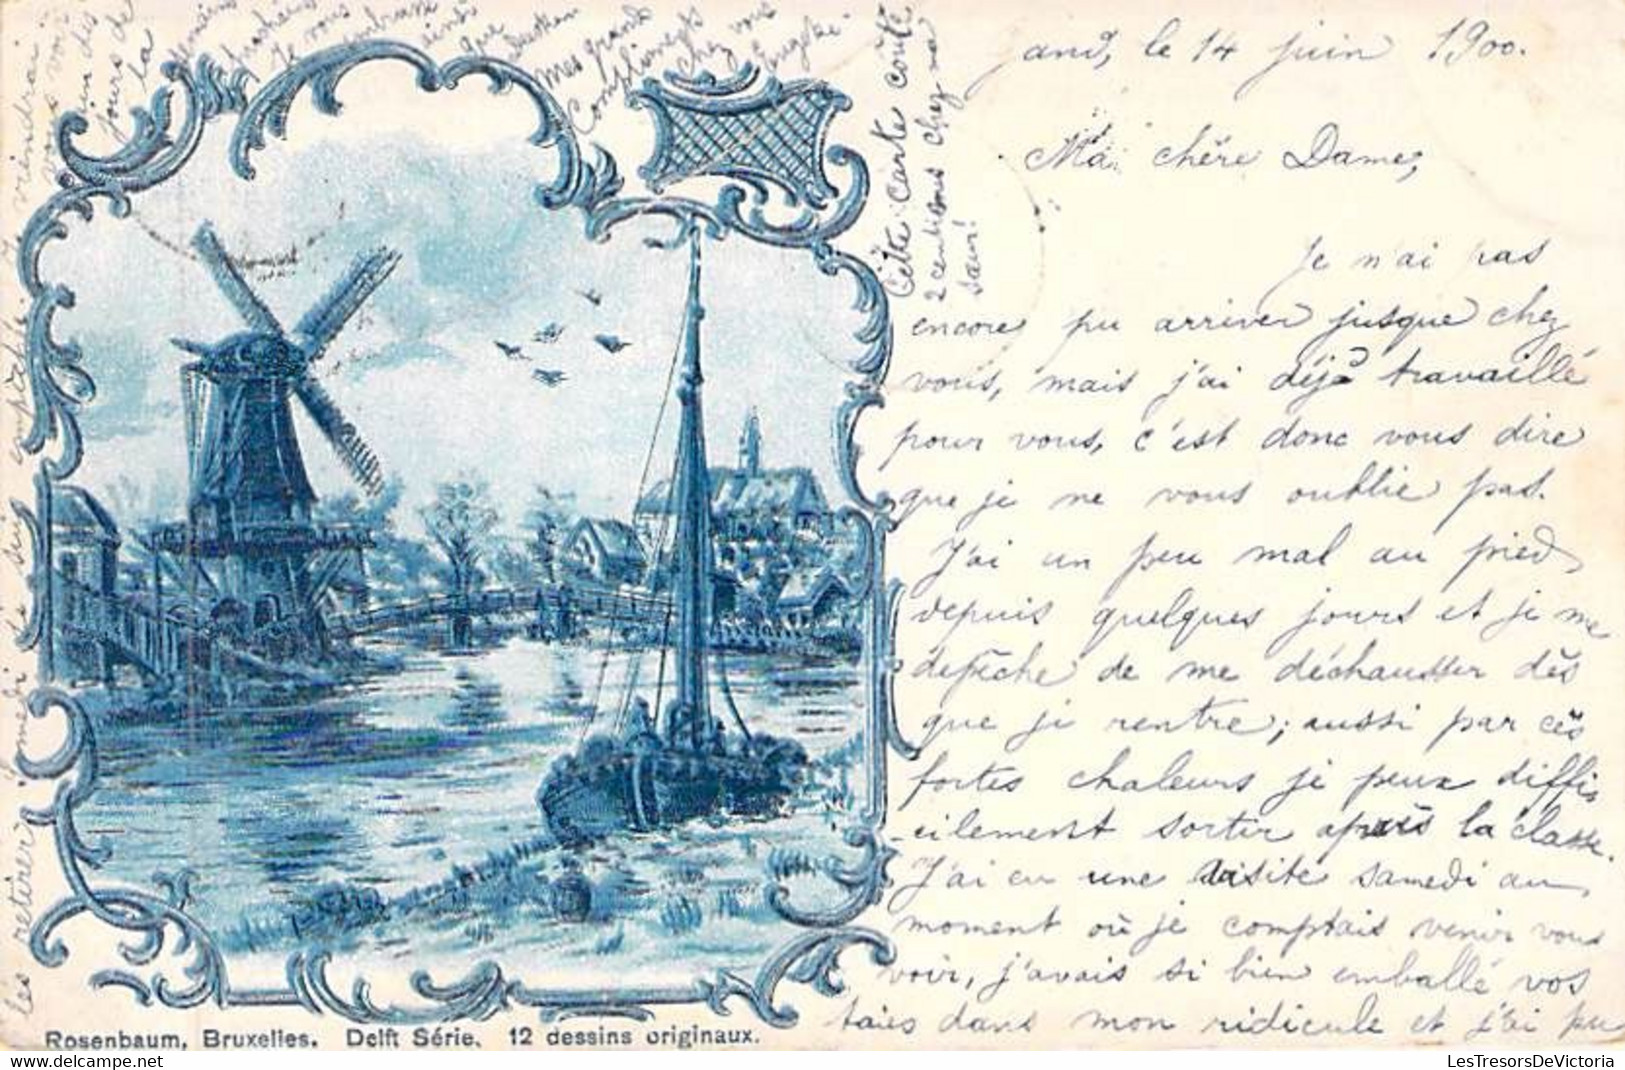 Gand, le 14 juin 1900.
Ma chère Dame,
Je n'ai pas
encore pu arriver jusque chez
vous, mais j'ai déjà travaillé
pour vous, c'est donc vous dire
que je ne vous oublie pas.
J'ai un peu mal au pied
depuis quelques jours et je me
depêche de me déchausser dès
que je rentre; aussi par ces
fortes chaleurs je peux diffi
cilement sortir après la classe.
J'ai eu une visite samedi au
moment où je comptais venir vous
voir, j'avais si bien emballé vos
taies dans mon ridicule et j'ai pu
les retirer
samedi
viendrai
vous voir
un des
jours de
la
semaine
prochaine
Je vous
embrasse
ainsi
que
Mes grands
Compliments
chez vous
Cette carte coûte
2 centimes chez ma
sœur!
Rosenbaum, Bruxelles. Delft Série. 12 dessins originaux.
LesTresorsDeVictoria